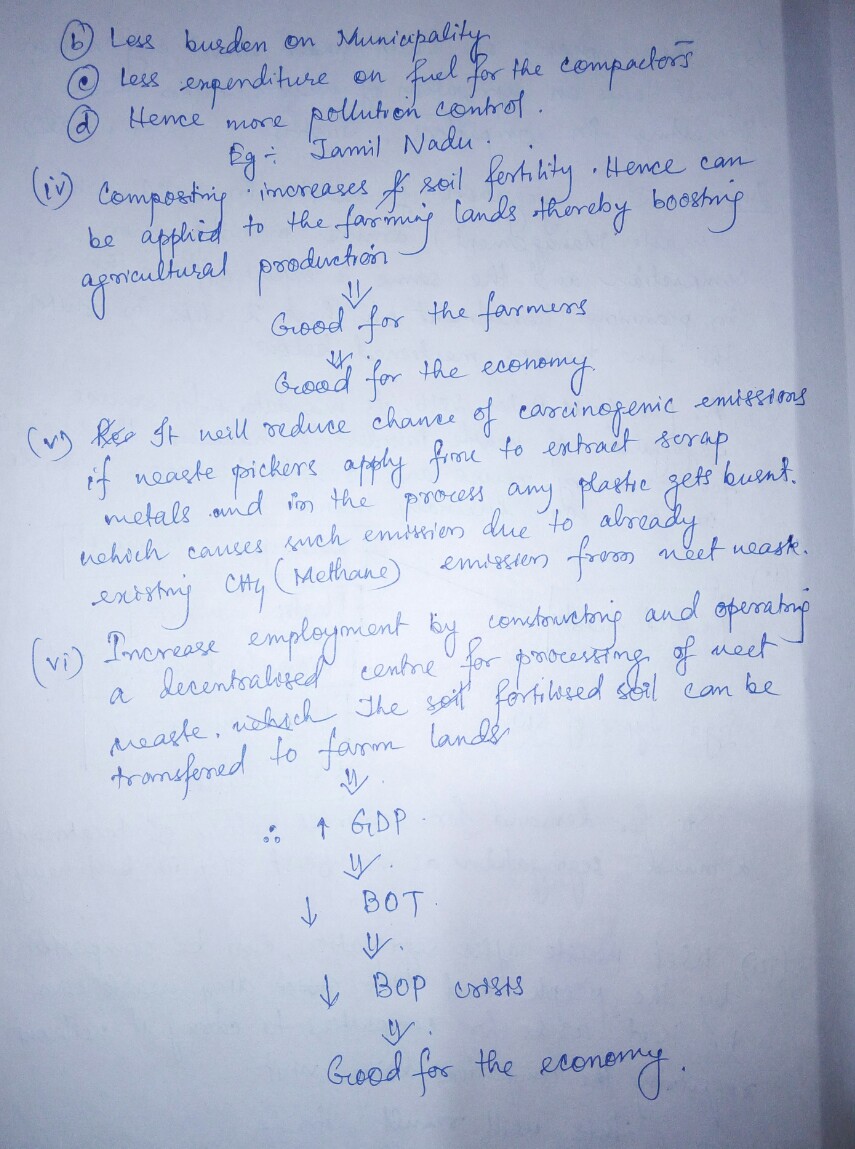 (b) Less burden on Municipality
(c) Less expenditure on fuel for the compactors
(d) Hence more pollution control.
Eg ÷ Tamil Nadu.
(iv) Composting increases soil fertility. Hence can
be applied to the farming lands thereby boosting
agricultural production
⇓
Good for the farmers
⇓
Good for the economy.
(v) It will reduce chance of carcinogenic emissions
if waste pickers apply fire to extract scrap
metals and in the process any plastic gets burnt.
which causes such emission due to already
existing CH4 (Methane) emission from wet waste.
(vi) Increase employment by constructing and operating
a decentralised centre for processing of wet
waste. which The soil fertilised soil can be
transferred to farm lands
⇓
∴ ↑ GDP
⇓
↓ BOT
⇓
↓ BOP crisis
⇓
Good for the economy.